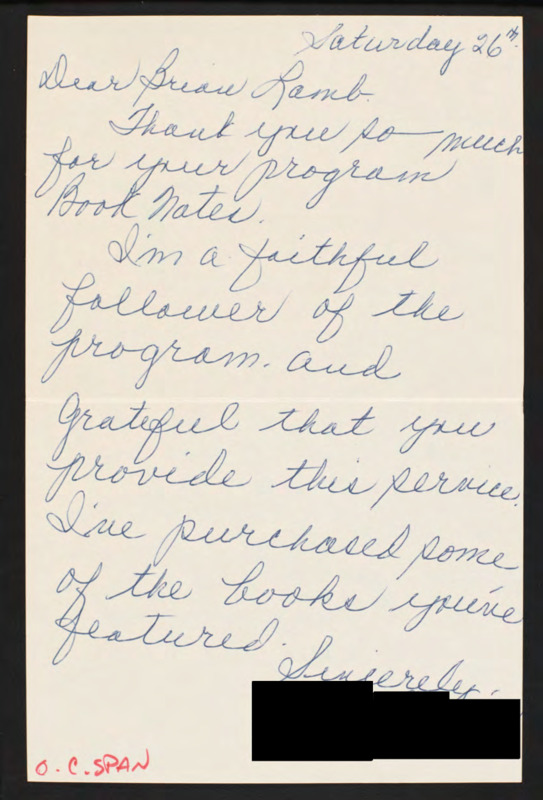 Saturday 26th.
Dear Brian Lamb.
Thank you so much
for your program
Book Notes.
I'm a faithful
follower of the
program. and
grateful that you
provide this service.
I've purchased some
of the books you've
featured.
Sincerely.
O. C. SPAN